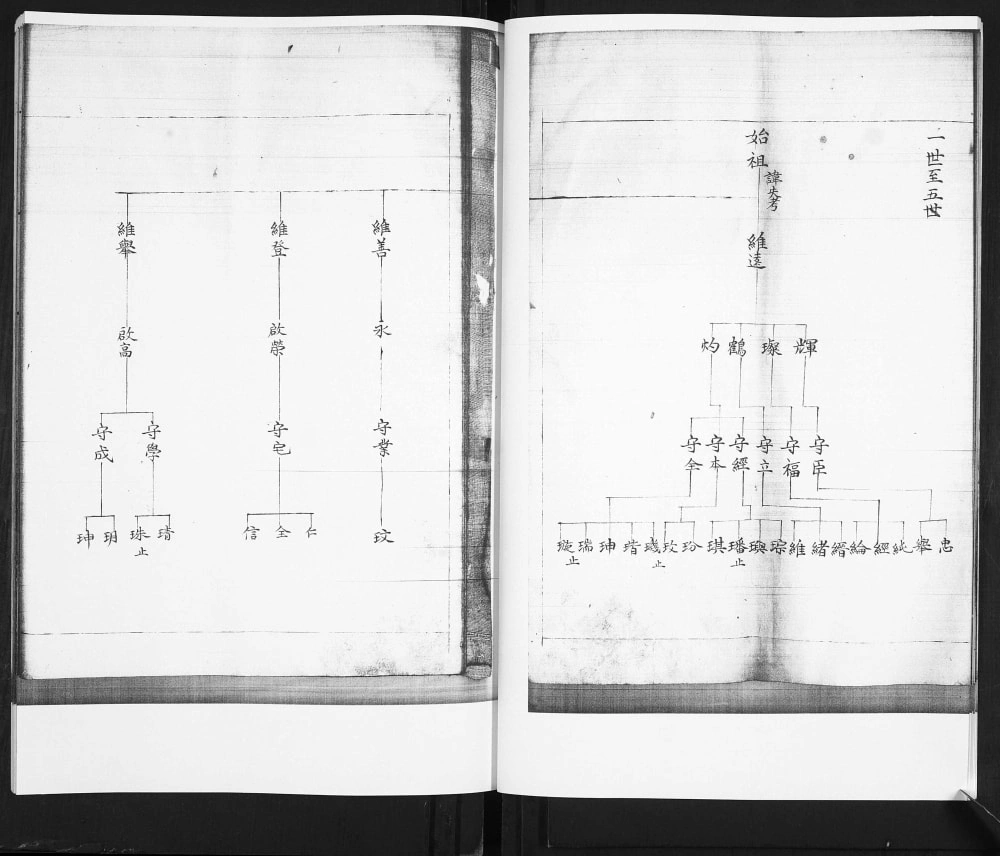 一世至五世
始祖
諱失考
維遠
輝
璨
鶴
灼
守臣
守福
守立
守經
守本
守全
忠
舉
純
經
綸
縉
緒
維
琮
璵
璠止
琪
玢
玫
璣止
琇
珅
瑞
璇止
維善
永
守業
玟
維登
啟榮
守宅
仁
全
信
維舉
啟高
守學
守成
琇
珠止
玥
珅